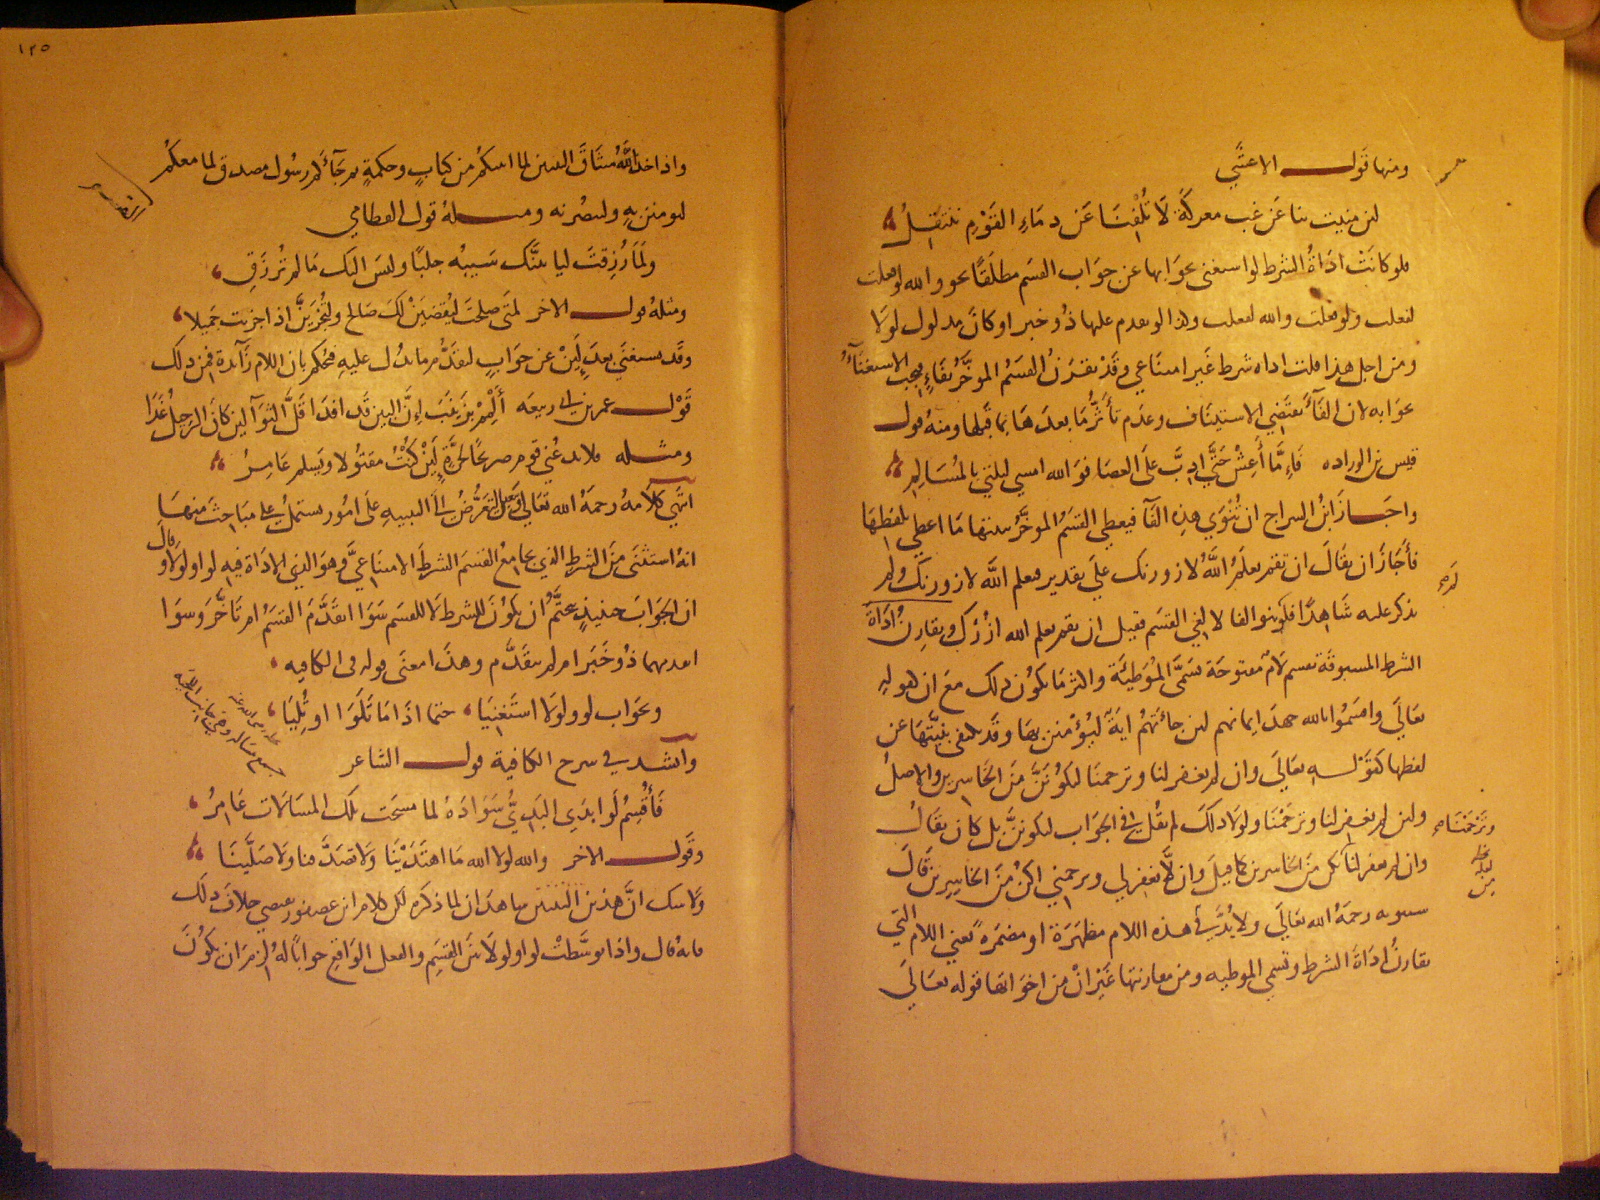 ومنها قول الاعشى
لئن منيت بنا عن غب معركة لا تلفنا عن دماء القوم ننتفل
فلو كانت اداة الشرط لو استغنى بجوابها عن جواب القسم مطلقا نحو والله لو فعلت
لفعلت ولو فعلت والله لفعلت وكذا لو تقدم عليها ذو خبر او كان بدل لو لولا
ومن اجل هذا قلت اداة شرط غير امتناعي وقد يقترن القسم المؤخر بفاء فيجب الاستغناء
بجوابه لان الفاء تقتضي الاستئناف وعدم تأثر ما بعدها بما قبلها ومنه قول
قيس بن الورادة فاما أعش حتى ادب على العصا فوالله انسي ليلتي بالمسالم
واجاز ابن السراج ان تنوى هذه الفاء فيعطى القسم المؤخر بنيتها ما اعطي بلفظها
فأجاز ان يقال ان تقم يعلم الله لازورنك على تقدير فيعلم الله لازورنك ولم
يذكر عليه شاهدا فلو لم تنو الفاء لالغي القسم فقيل ان تقم يعلم الله ازرك وتقارن اداة
الشرط المسبوقة بقسم لام مفتوحة تسمى الموطئة واكثر ما يكون ذلك مع ان كقوله
تعالى واقسموا بالله جهد ايمانهم لئن جائتهم اية ليؤمنن بها وقد يكتفى بنيتها عن
لفظها كقوله تعالى وان لم يغفر لنا وترحمنا لنكونن من الخاسرين والاصل
ولئن لم يغفر لنا وترحمنا ولولا ذلك لم يقل في الجواب لنكونن بل كان يقال
وان لم يغفر لنا نكن من الخاسرين كما قيل وان لا تغفر لي وترحمني اكن من الخاسرين قال
سيبويه رحمه الله تعالى ولا بد في هذه اللام مظهرة او مضمرة يعني اللام التي
تقارن اداة الشرط وتسمى الموطية ومن مقارنتها غير ان من اخواتها قوله تعالى
وترحمنا
١٢٥
واذ اخذ الله ميثاق النبيين لما اتيتكم من كتاب وحكمة ثم جآءكم رسول مصدق لما معكم
لتومنن به ولتنصرنه ومثله قول القطامي
ولما رزقت لياتينك سيبه جلبا وليس اليك ما لم ترزق
ومثله قول الاخر لمتى صلحت ليقضين لك صالح ولتجزين اذا جزيت جميلا
وقد يستغنى بعد لئن عن جواب لتقدم ما يدل عليه فيحكم بان اللام زآئدة فمن ذلك
قول عمر بن ابي ربيعه ألمم بزينب إن البين قد افدا قل الثوآ لئن كان الرحيل غدا
ومثله فلا يدعني قوم صريحا لحرة لئن كنت مقتولا ويسلم عامر
انتهى كلامه رحمه الله تعالى وقبل التعرض الى التنبيه على امور يشتمل على مباحث منها
انه استثنى من الشرط الذي يجامع القسم الشرط الامتناعي وهو الذي الاداة فيه لو او لولا وقال
ان الجواب حينئذ يتحتم ان يكون للشرط لا للقسم سوا تقدم القسم ام تأخر وسوا
تقدمهما ذو خبر ام لم يتقدم وهذا معنى قوله في الكافيه
وبجواب لو ولولا استغنيا حتما اذا ما تلوا او تليا
وانشد في شرح الكافية قول الشاعر
فأقسم لو ابدى الندي سواده لما مسحت تلك المسالات عامر
وقول الاخر والله لولا الله ما اهتدينا ولا تصدقنا ولا صلينا
ولا شك ان هذين البيتين شاهدان لما ذكره لكن كلام ابن عصفور يقتضي خلاف ذلك
فانه قال واذا توسطت لو او لولا بين القسم والفعل الواقع جوابا له لزم ان يكون